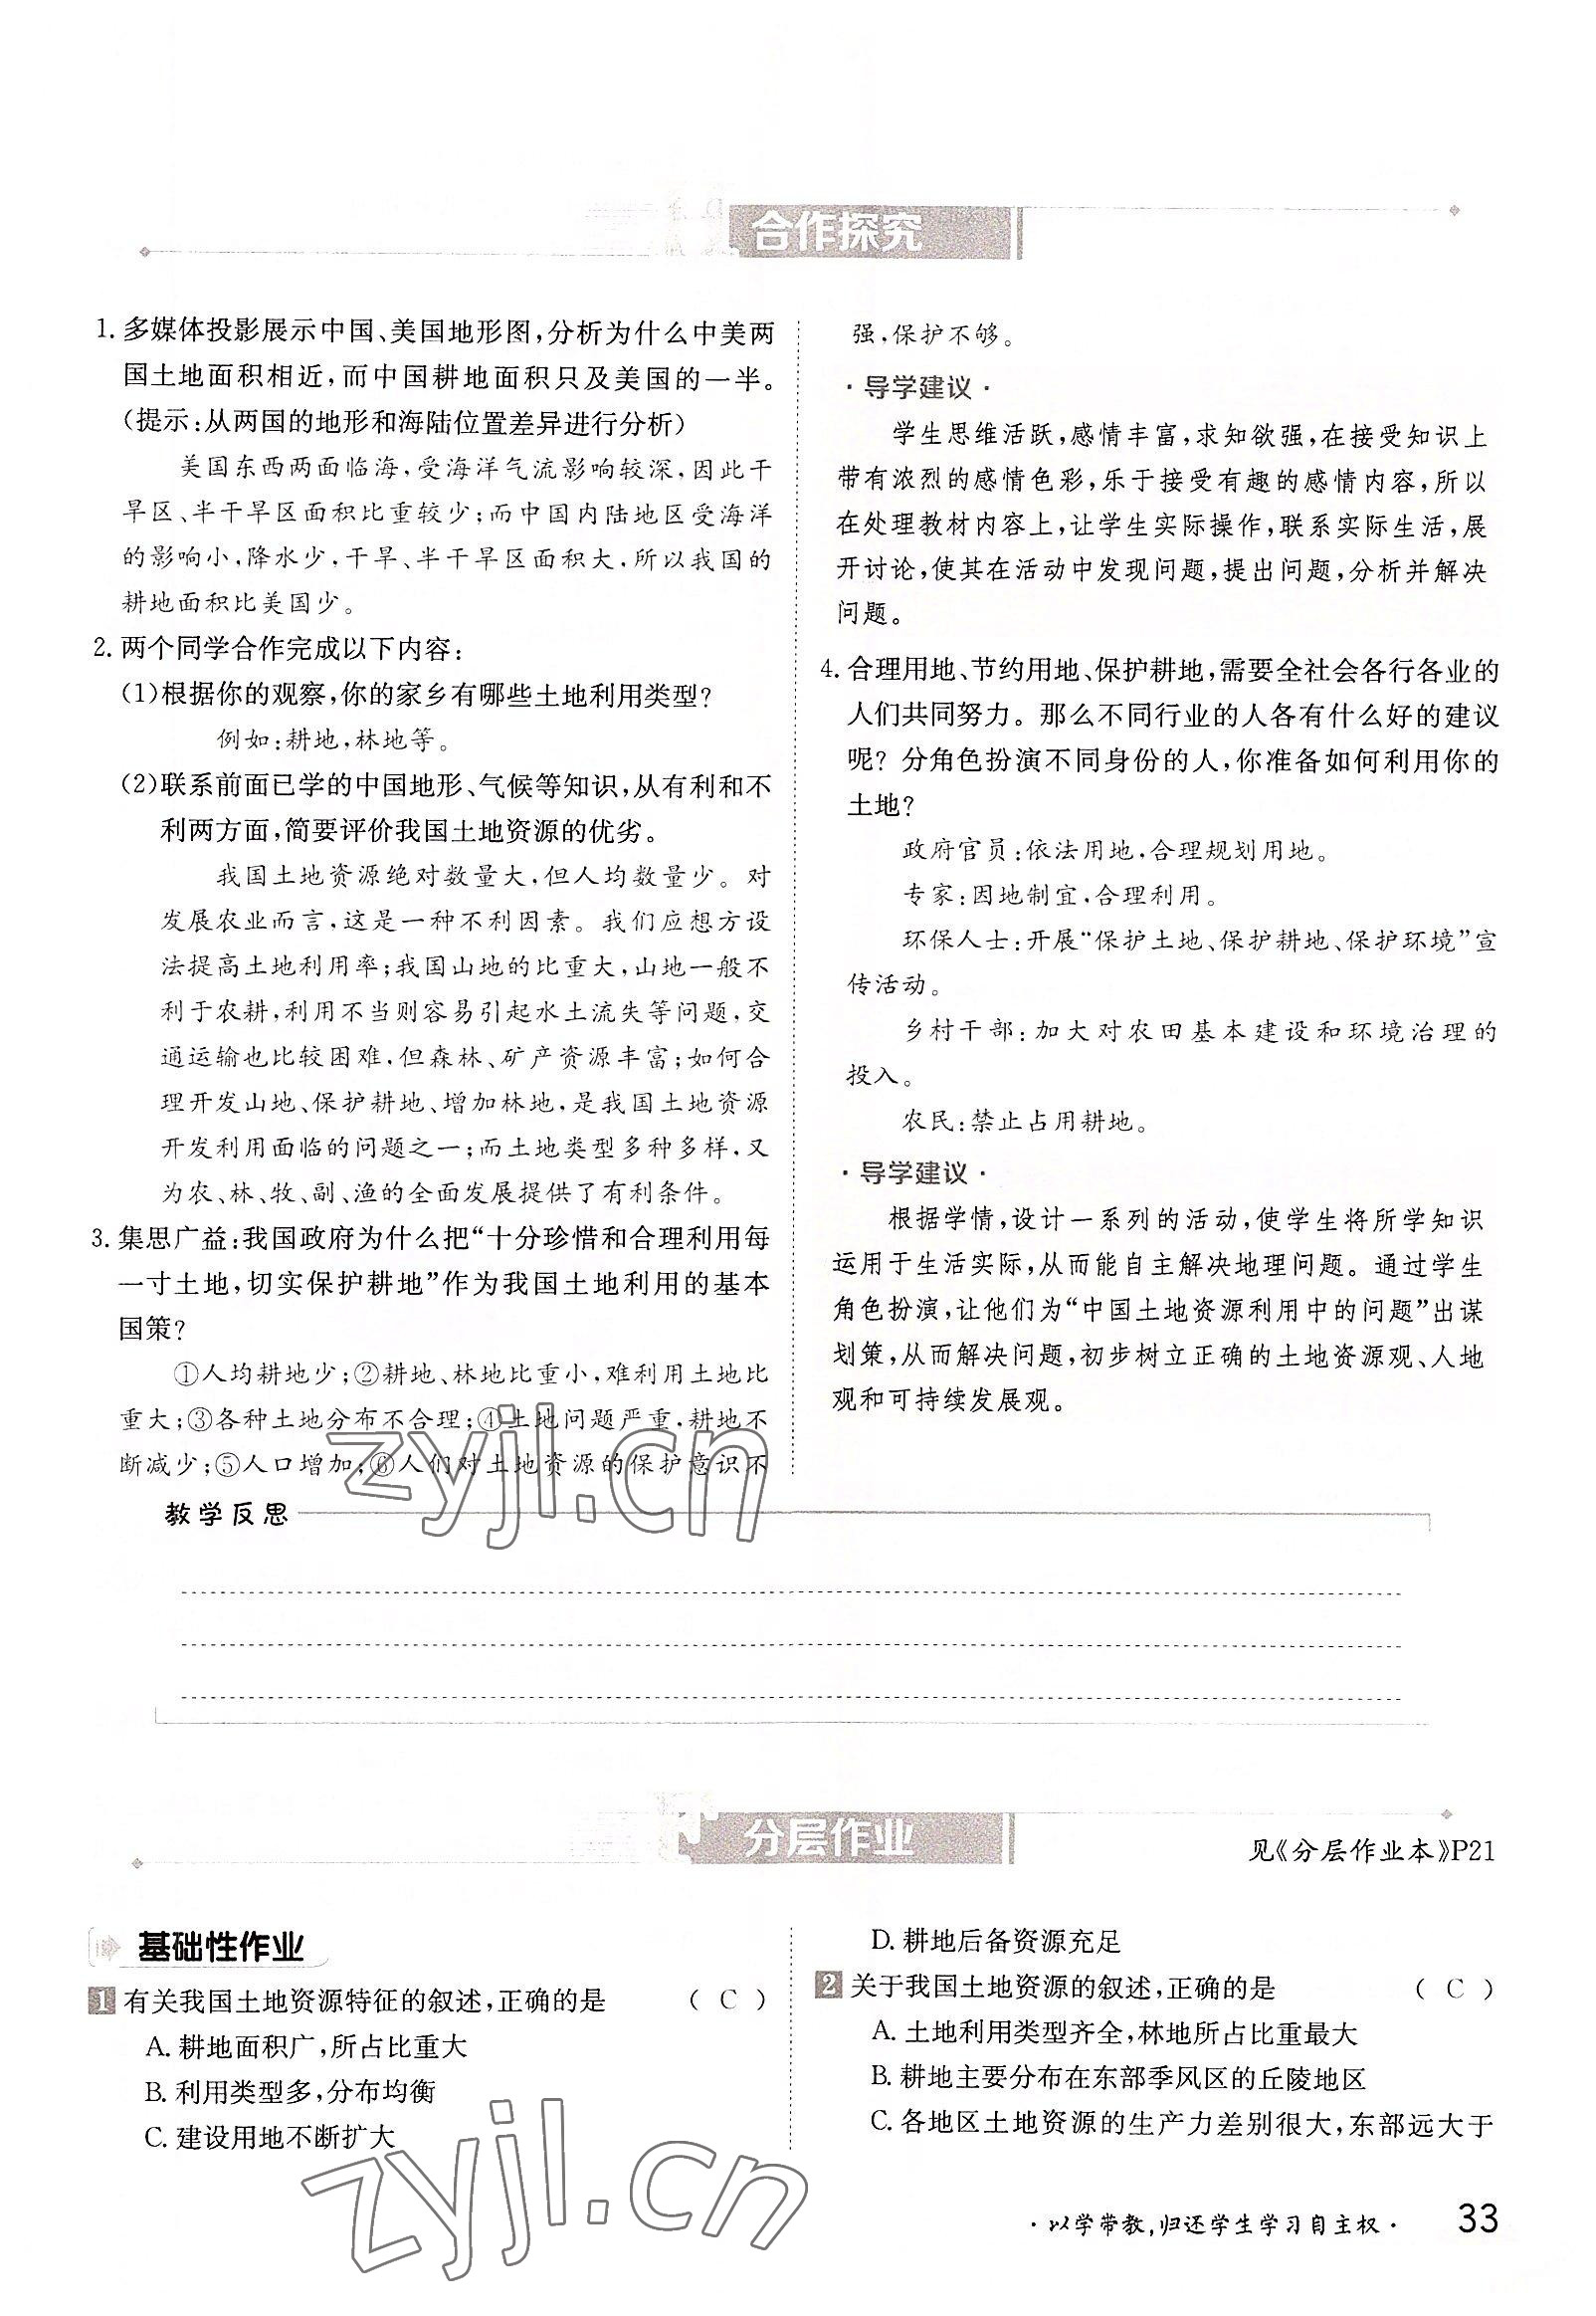 合作探究
1. 多媒体投影展示中国、美国地形图,分析为什么中美两
国土地面积相近,而中国耕地面积只及美国的一半。
(提示:从两国的地形和海陆位置差异进行分析)
美国东西两面临海,受海洋气流影响较深,因此干
旱区、半干旱区面积比重较少;而中国内陆地区受海洋
的影响小,降水少,干旱、半干旱区面积大,所以我国的
耕地面积比美国少。
2. 两个同学合作完成以下内容:
(1)根据你的观察,你的家乡有哪些土地利用类型?
例如:耕地,林地等。
(2)联系前面已学的中国地形、气候等知识,从有利和不
利两方面,简要评价我国土地资源的优劣。
我国土地资源绝对数量大,但人均数量少。对
发展农业而言,这是一种不利因素。我们应想方设
法提高土地利用率;我国山地的比重大,山地一般不
利于农耕,利用不当则容易引起水土流失等问题,交
通运输也比较困难,但森林、矿产资源丰富;如何合
理开发山地、保护耕地、增加林地,是我国土地资源
开发利用面临的问题之一;而土地类型多种多样,又
为农、林、牧、副、渔的全面发展提供了有利条件。
3. 集思广益:我国政府为什么把“十分珍惜和合理利用每
一寸土地,切实保护耕地”作为我国土地利用的基本
国策?
①人均耕地少;②耕地、林地比重小,难利用土地比
重大;③各种土地分布不合理;④土地问题严重,耕地不
断减少;⑤人口增加;⑥人们对土地资源的保护意识不
强,保护不够。
·导学建议·
学生思维活跃,感情丰富,求知欲强,在接受知识上
带有浓烈的感情色彩,乐于接受有趣的感情内容,所以
在处理教材内容上,让学生实际操作,联系实际生活,展
开讨论,使其在活动中发现问题,提出问题,分析并解决
问题。
4. 合理用地、节约用地、保护耕地,需要全社会各行各业的
人们共同努力。那么不同行业的人各有什么好的建议
呢? 分角色扮演不同身份的人,你准备如何利用你的
土地?
政府官员:依法用地,合理规划用地。
专家:因地制宜,合理利用。
环保人士:开展“保护土地、保护耕地、保护环境”宣
传活动。
乡村干部:加大对农田基本建设和环境治理的
投入。
农民:禁止占用耕地。
·导学建议·
根据学情,设计一系列的活动,使学生将所学知识
运用于生活实际,从而能自主解决地理问题。通过学生
角色扮演,让他们为“中国土地资源利用中的问题”出谋
划策,从而解决问题,初步树立正确的土地资源观、人地
观和可持续发展观。
教学反思
zyjl.cn
分层作业
见《分层作业本》P21
基础性作业
1 有关我国土地资源特征的叙述,正确的是 ( C )
A. 耕地面积广,所占比重大
B. 利用类型多,分布均衡
C. 建设用地不断扩大
D. 耕地后备资源充足
2 关于我国土地资源的叙述,正确的是 ( C )
A. 土地利用类型齐全,林地所占比重最大
B. 耕地主要分布在东部季风区的丘陵地区
C. 各地区土地资源的生产力差别很大,东部远大于
zyjl.cn
·以学带教,归还学生学习自主权· 33